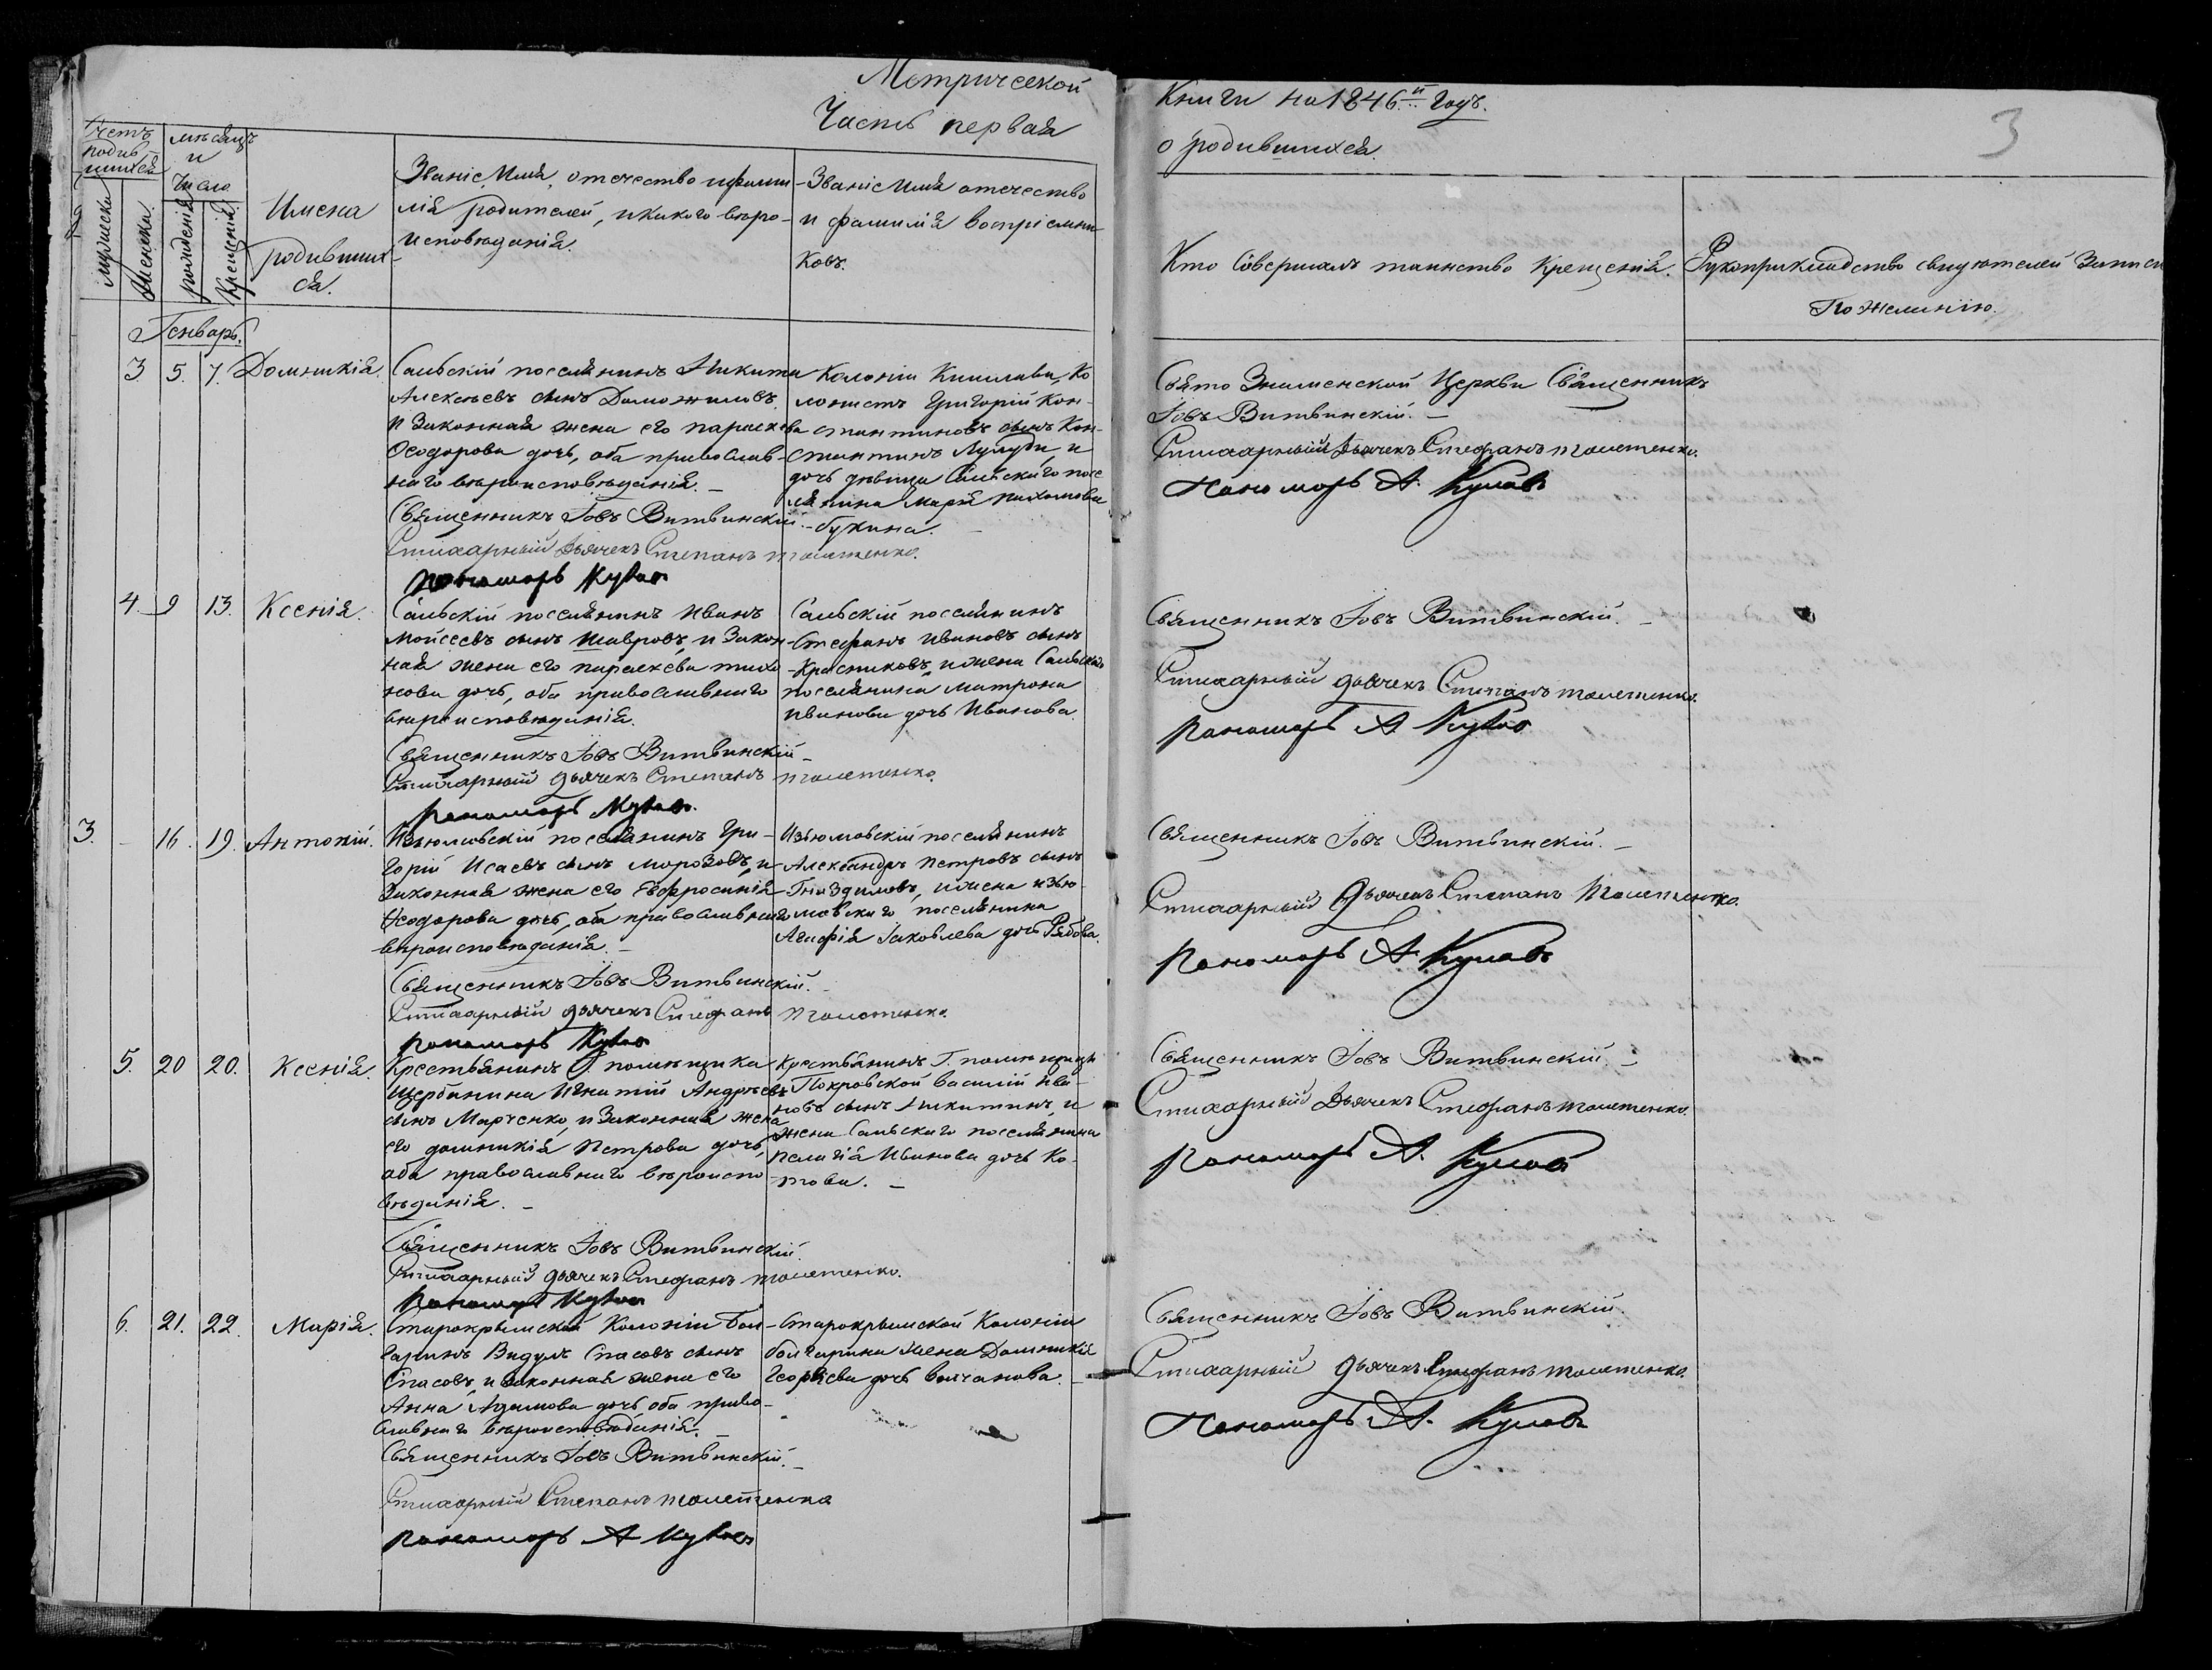 Метрической
Часть первая
Книги на 1846.й Годъ.
о родившихся.
3
Счетъ родив-шихся
мужеска
женска.
мѣсяцъ и Число
рожденія
Крещенія
Имена
родивших-
ся.
Званіе, Имя, отечество ифами
лія родителей, икакого вѣро-
исповѣданія.
Званіе Имя отечество
и фамилія воспріемни-
ковъ.
Кто Совершалъ таинство Крещенія.
Рукоприкладство свидѣтелей Записи
По Желанію.
Генварь.
3. 5. 7. Домникія.
Сальскій поселянинъ Никита
Алексѣевъ сынъ Доможиловъ
и Законная жена его параскева
Ѳеодорова дочь, оба православ-
наго вѣроисповѣданія. –
Священникъ Іовъ Витвинскій.
Стихарный Дьячекъ Степанъ
пономарь
Колоніи Кишлава, Ко
лонистъ Григорій Кон-
стантиновъ сынъ Кон-
стантинъ и
дочь дѣвица Сальскаго посе
лянина Марія Пахомова
Букина.
Свято Знаменской Церкви Священникъ
Іовъ Витвинскій. –
Стихарный Дьячекъ Стефанъ
пономарь А.
4. 9 13. Ксенія.
Сальскій поселянинъ Иванъ
Мойсеевъ сынъ Шавровъ, и Закон
ная жена его параскева тихо
нова дочь, оба православнаго
вѣроисповѣданія.
Священникъ Іовъ Витвинскій –
Стихарный дьячекъ Степанъ
пономарь
Сальскій поселянинъ
Стефанъ Ивановъ сынъ
Красниковъ, ижена Сальскаго
поселянина Матрона
Иванова дочь Иванова.
Священникъ Іовъ Витвинскій. –
Стихарный дьячекъ Степанъ
пономарь А
3. – 16. 19. Антоній.
Изюмовскій поселянинъ Гри-
горій Исаевъ сынъ Морозовъ, и
Законная жена его Евфросинія
Ѳеодорова дочь, оба православнаго
вѣроисповѣданія. –
Священникъ Іовъ Витвинскій. –
Стихарный дьячекъ Стефанъ
пономарь
Изюмовскій поселянинъ
Александръ Петровъ сынъ
Гнѣздиловъ, ижена изю-
мовскаго поселянина
Агафія Іаковлева дочь Рябова.
Священникъ Іовъ Витвинскій. –
Стихарный Дьячекъ Степанъ
пономарь А.
5. 20 20. Ксенія.
Крестьянинъ Г. помѣщика
Щербинина Игнатій Андреевъ
сынъ Марченко, и Законная жена
его домникія Петрова дочь,
оба православнаго вѣроиспо
вѣданія. –
Священникъ Іовъ Витвинскій.
Стихарный дьячекъ Стефанъ
пономарь
Крестьянинъ Г. помѣщицы
Покровской василій Ива-
новъ сынъ Никитинъ, и
жена Сальскаго поселянина
пелагія Иванова дочь Ко-
това. –
Священникъ Іовъ Витвинскій. –
Стихарный Дьячекъ Стефанъ
пономарь А.
6. 21. 22. Марія.
Старокрымской Колоніи бол-
гаринъ Видулъ Спасовъ сынъ
Спасовъ, и законная жена его
Анна Адамова дочь оба право-
славнаго вѣроисповѣданія.
Священникъ Іовъ Витвинскій. –
Стихарный Степанъ
пономарь А
Старокрымской Колоніи
болгарина жена Домникія
Георгіева дочь волчанова. –
Священникъ Іовъ Витвинскій.
Стихарный дьячекъ Стефанъ
пономарь А.